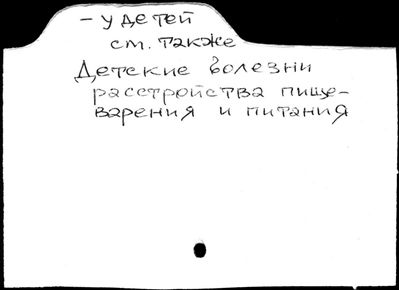 - у детей
см. также
Детские болезни
расстройства пище-
варения и питания